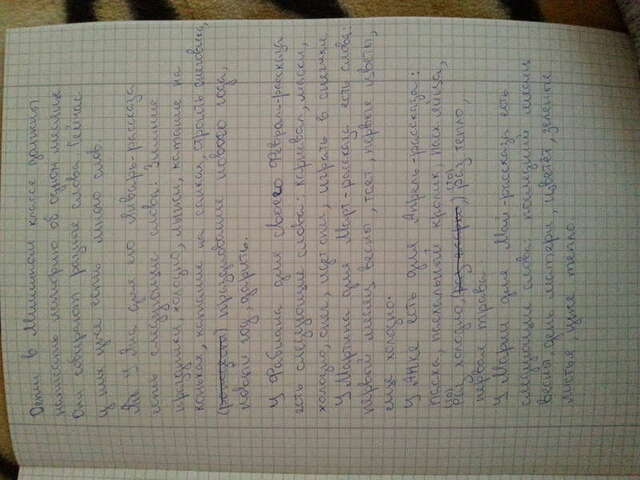 Дети в Мишином классе должны
написать историю об одном месяце
Они собирают разные слова. Сейчас
у них уже есть много слов.
У Яна для его Январь-рассказа
есть следующие слова: Зимние
праздники, холодно, лыжи, катание на
коньках, катание на санках, строить снеговика,
празднование нового года,
Новый год, дарить.
У Фабиана для Февраль-рассказа
есть следующие слова: карнавал, маски,
холодно, снег, идёт снег, играть в снежки
У Марины для Март-рассказа есть слова:
первый месяц весны, тает, первые цветы,
ещё холодно.
У Анке есть для Апрель-рассказа:
пасха, пасхальный кролик, пасх. яйца,
раз холодно, раз тепло,
первая трава.
У Марии для Май-рассказа есть
следующие слова: последний месяц
весны, день матери, цветёт, зелёные
листья, уже тепло.